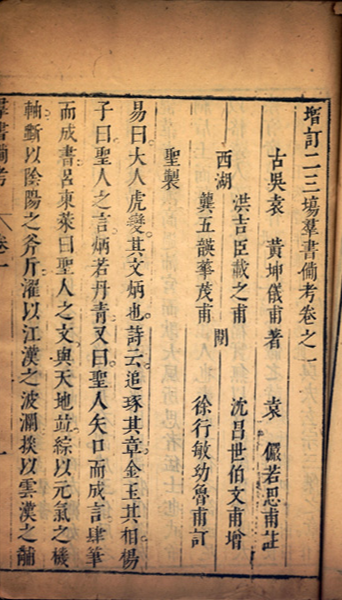 增訂二三塲羣書備考卷之一
古吳袁 黃坤儀甫著 袁 儼若思甫註
西湖
洪吉臣載之甫 沈昌世伯文甫增
龔五韺華茂甫 閱 徐行敏幼魯甫訂
聖製
易曰大人虎變其文炳也詩云追琢其章金玉其相楊
子曰聖人之言炳若丹青又曰聖人矢口而成言肆筆
而成書呂東萊曰聖人之文與天地並綜以元氣之機
軸斷以陰陽之斧斤濯以江漢之波瀾揆以雲漢之黼
羣書備考 卷一 一